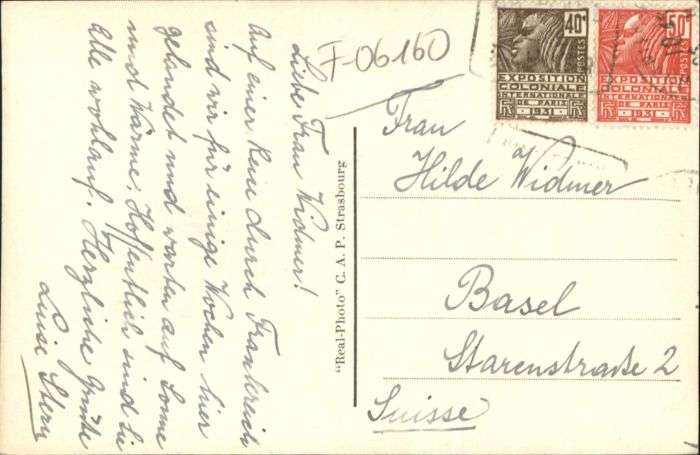 F-06160
Liebe Frau Widmer!
Auf einer Reise durch Frankreich
sind wir für einige Wochen hier
gelandet und warten auf Sonne
und Wärme. Hoffentlich sind Sie
Alle wohlauf. Herzliche Grüße
Luise Stern
"Real-Photo" C. A. P. Strasbourg
40c
POSTES
EXPOSITION
COLONIALE
INTERNATIONALE
DE PARIS
1931
50c
POSTES
EXPOSITION
COLONIALE
INTERNATIONALE
DE PARIS
1931
Frau
Hilde Widmer
Basel
Starenstraße 2
Suisse